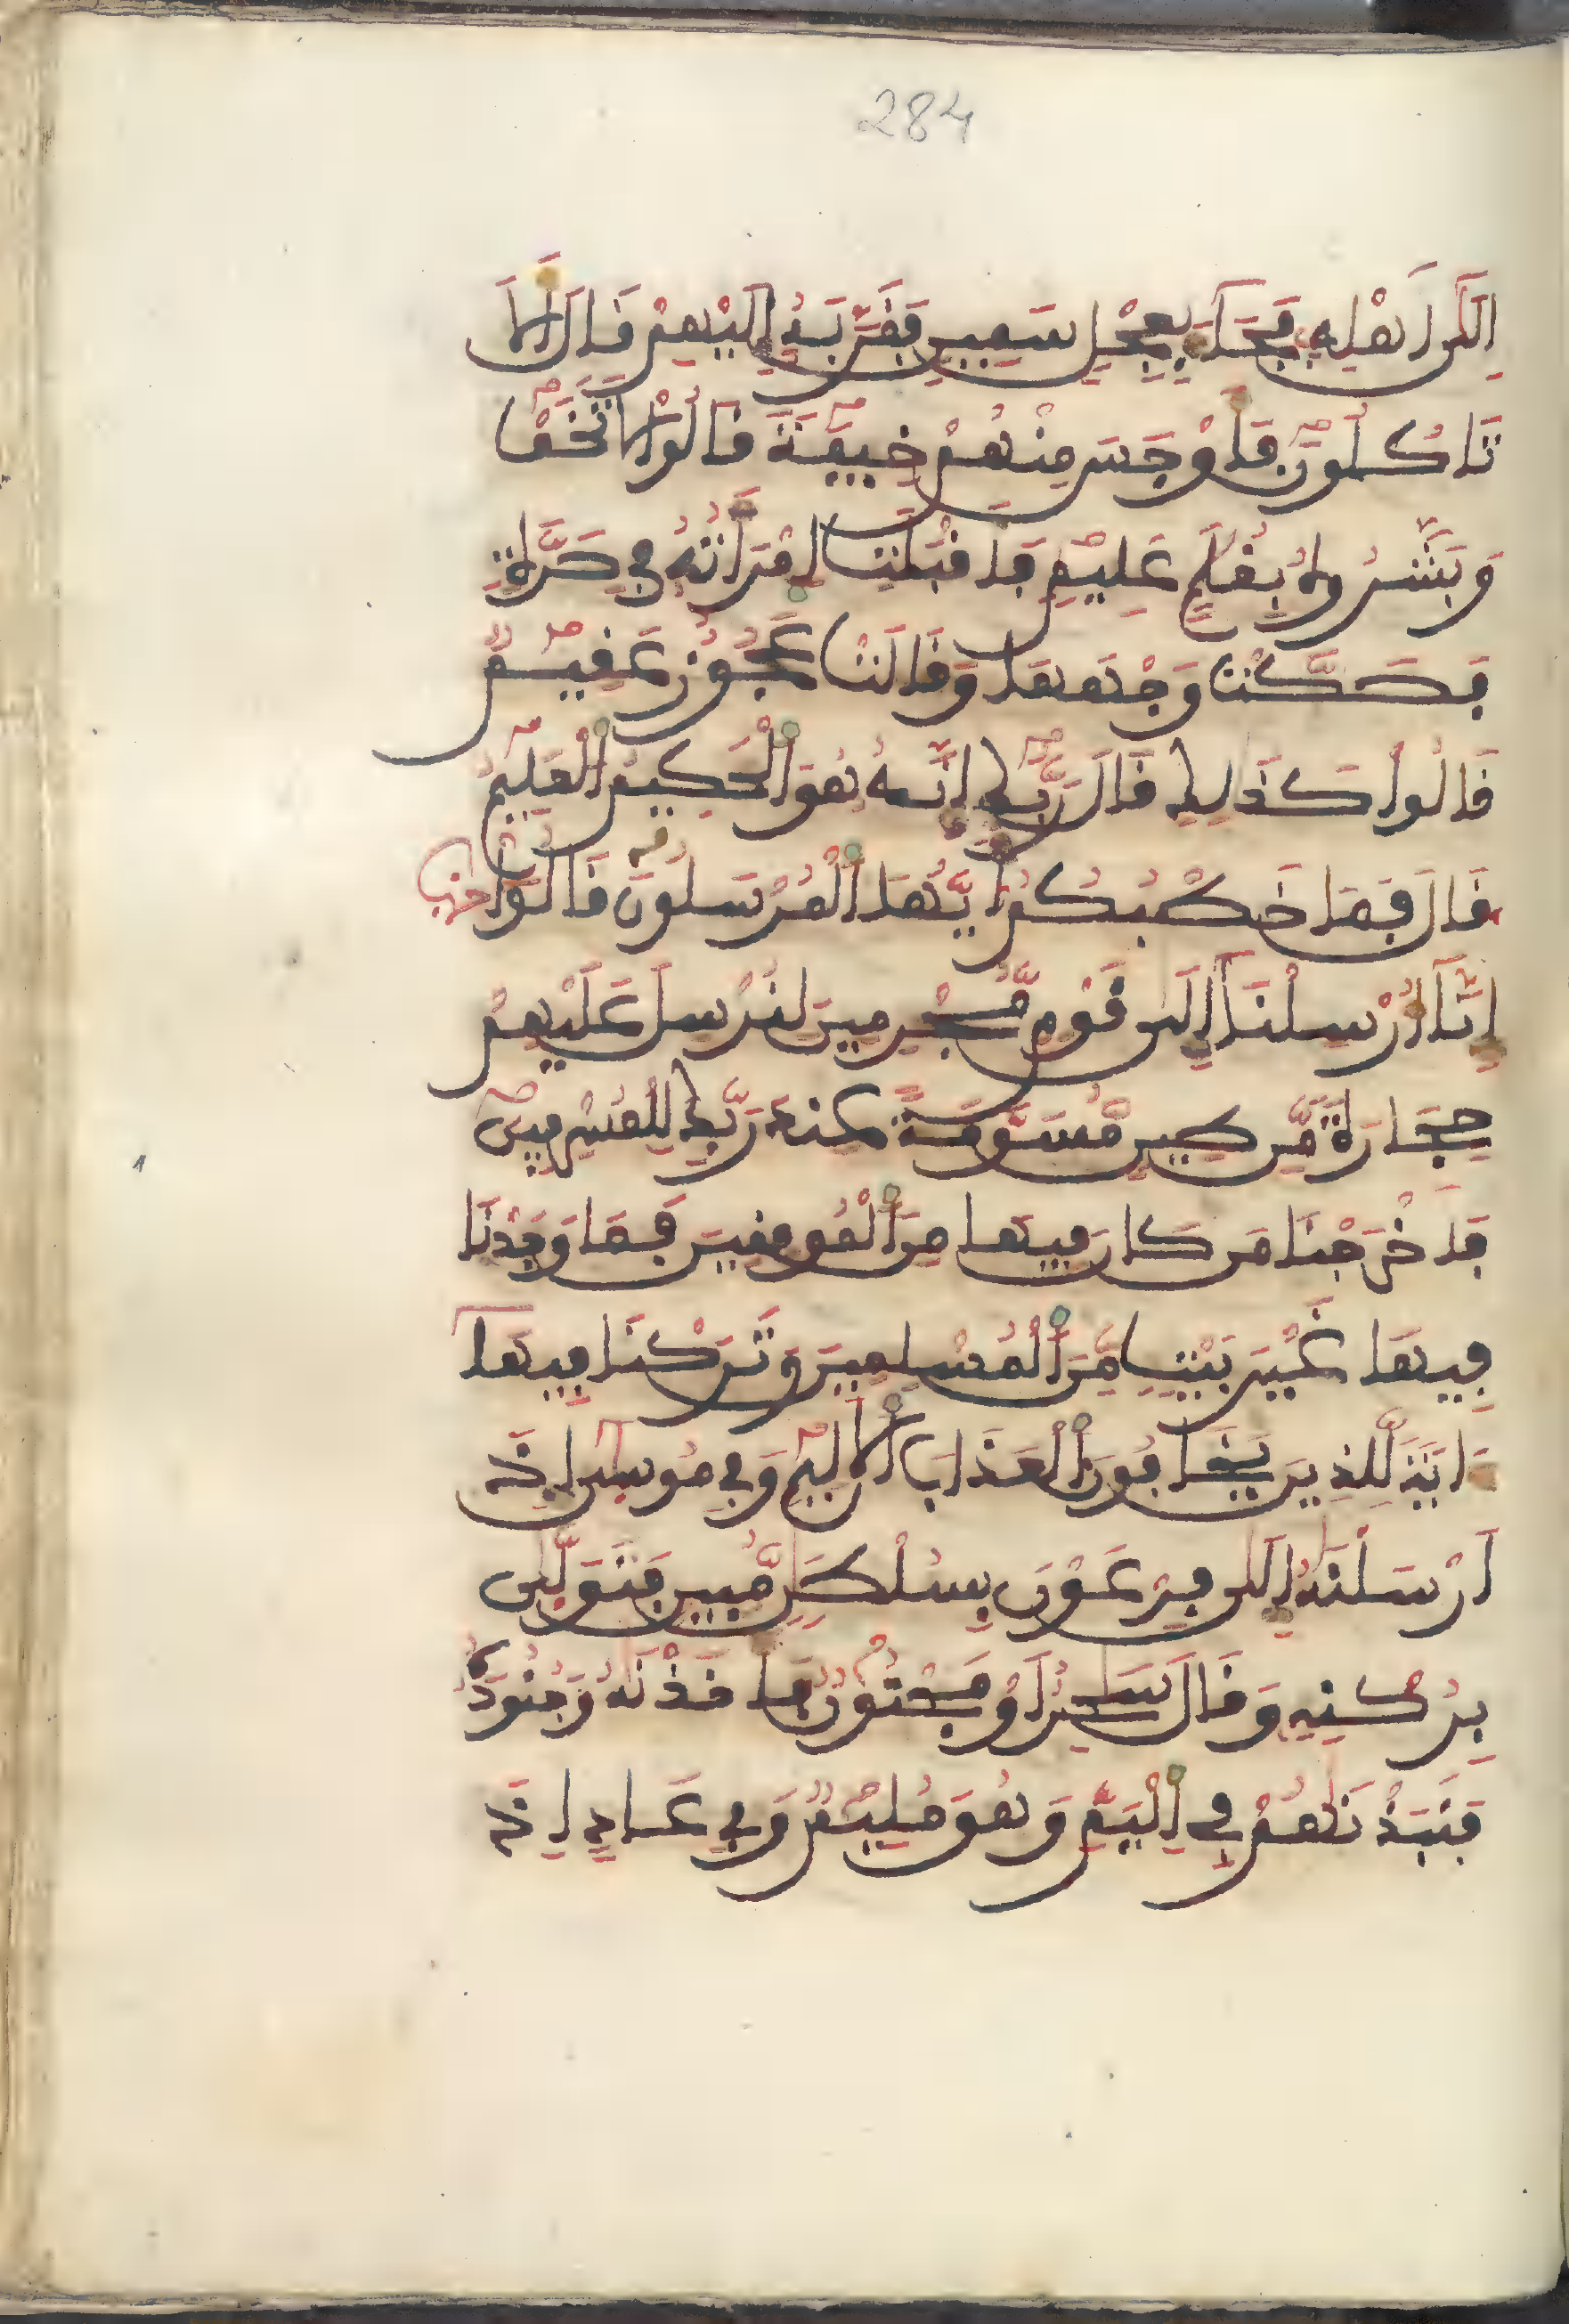 284
إلى أهله فجاء بعجل سمين فقربه إليهم قال ألا
تاكلون فأوجس منهم خيفة قالوا لا تخف
وبشروه بغلم عليم فأقبلت امرأته في صرة
فصكت وجهها وقالت عجوز عقيم
قالوا كذلك قال ربك إنه هو الحكيم العليم
قال فما خطبكم أيها المرسلون قالوا
إنا أرسلنا إلى قوم مجرمين لنرسل عليهم
حجارة من طين مسومة عند ربك للمسرفين
فأخرجنا من كان فيها من المومنين فما وجدنا
فيها غير بيت من المسلمين وتركنا فيها
ءاية للذين يخافون العذاب الأليم وفي موسى إذ
أرسلنه إلى فرعون بسلطن مبين فتولى
بركنه وقال سحر أو مجنون فأخذنه وجنوده
فنبذنهم في اليم وهو مليم وفي عاد إذ